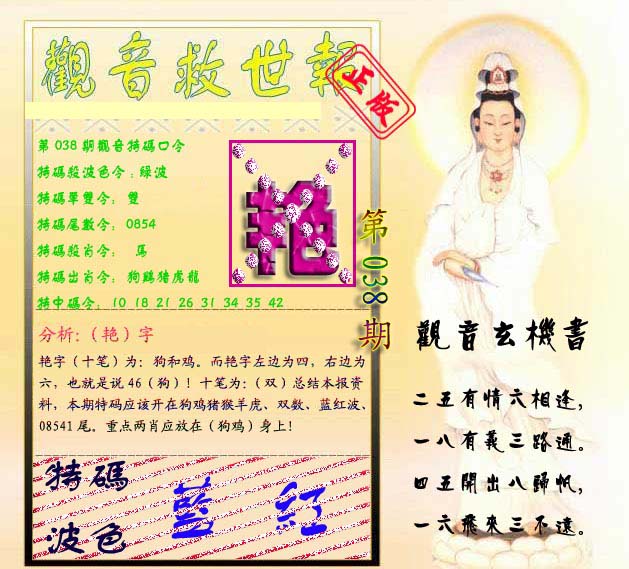 觀音救世報
正版
第038期觀音特碼口令
特碼殺波色令:綠波
特碼單雙令: 雙
特碼尾數令: 0854
特碼殺肖令: 馬
特碼出肖令: 狗鷄猪虎龍
特中碼令: 10 18 21 26 31 34 35 42
艳
第038期
分析:(艳)字
艳字(十笔)为: 狗和鸡。而艳字左边为四，右边为
六，也就是说46(狗)! 十笔为:(双)总结本报资
料，本期特码应该开在狗鸡猪猴羊虎、双数、蓝红波、
08541尾。重点两肖应放在(狗鸡)身上!
特碼
波色
藍 紅
觀音玄機書
二五有情六相逢，
一八有義三路通。
四五開出八歸帆，
一六飛來三不遠。